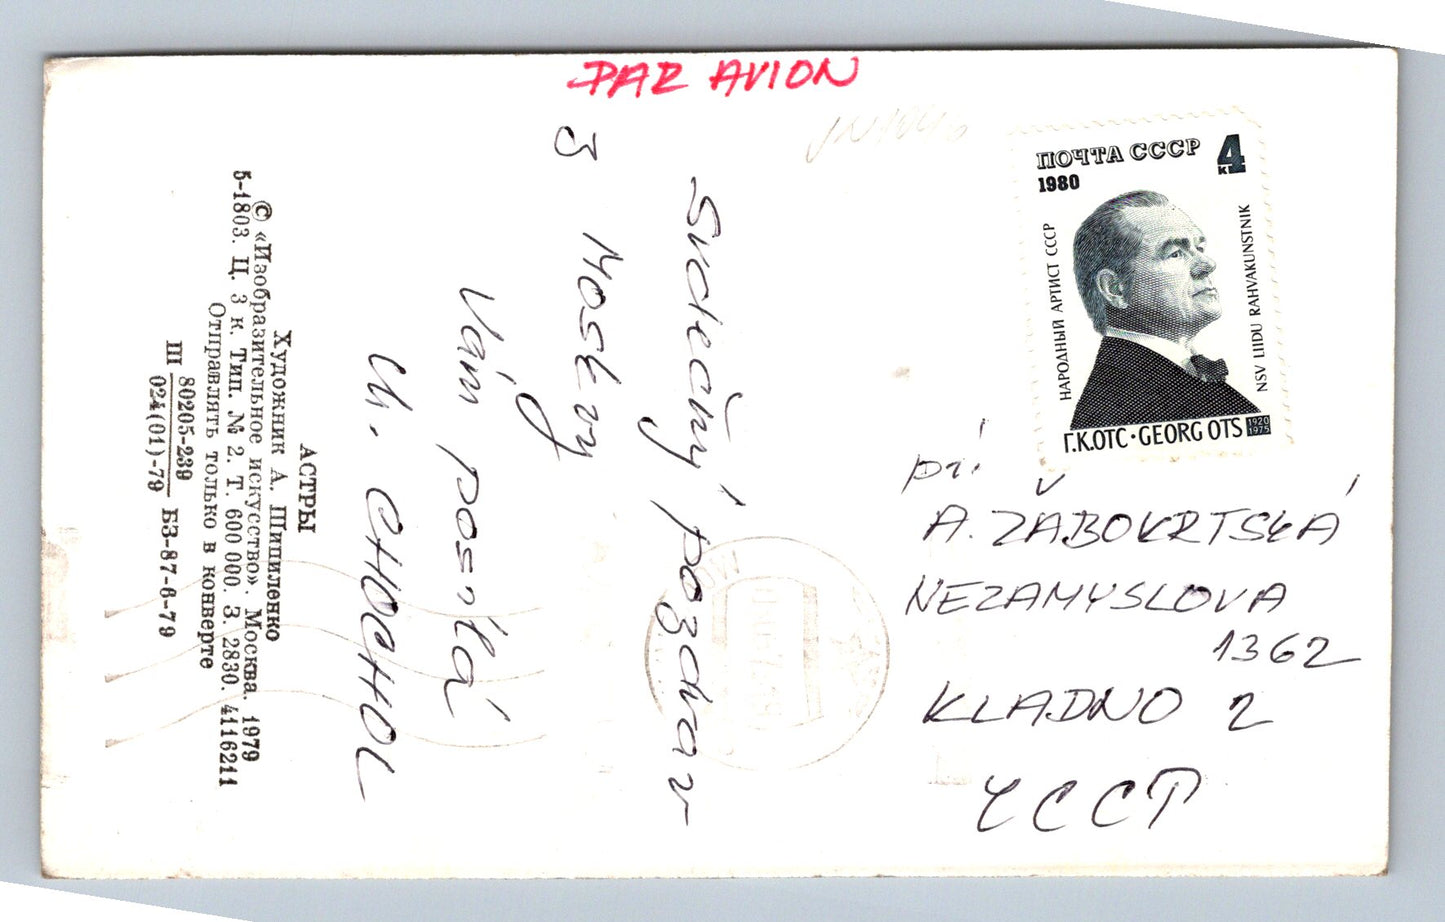 PAR AVION
ПОЧТА СССР
4
К
1980
НАРОДНЫЙ АРТИСТ СССР
NSV LIIDU RAHVAKUNSTNIK
Г.К.ОТС · GEORG OTS
1920
1975
Srdečný pozdrav
z Moskvy
Vám posílá
pí.
A. ŽÁBOKRTSKÁ
NEZAMYSLOVA
1362
KLADNO 2
ЧССР
АСТРЫ
Художник А. Шипиленко
© «Изобразительное искусство». Москва. 1979
5-1803. Ц. 3 к. Тип. № 2. Т. 600 000. З. 2830. 4116211
Отправлять только в конверте
Ш 80205-239
024(01)-79 БЗ-87-6-79